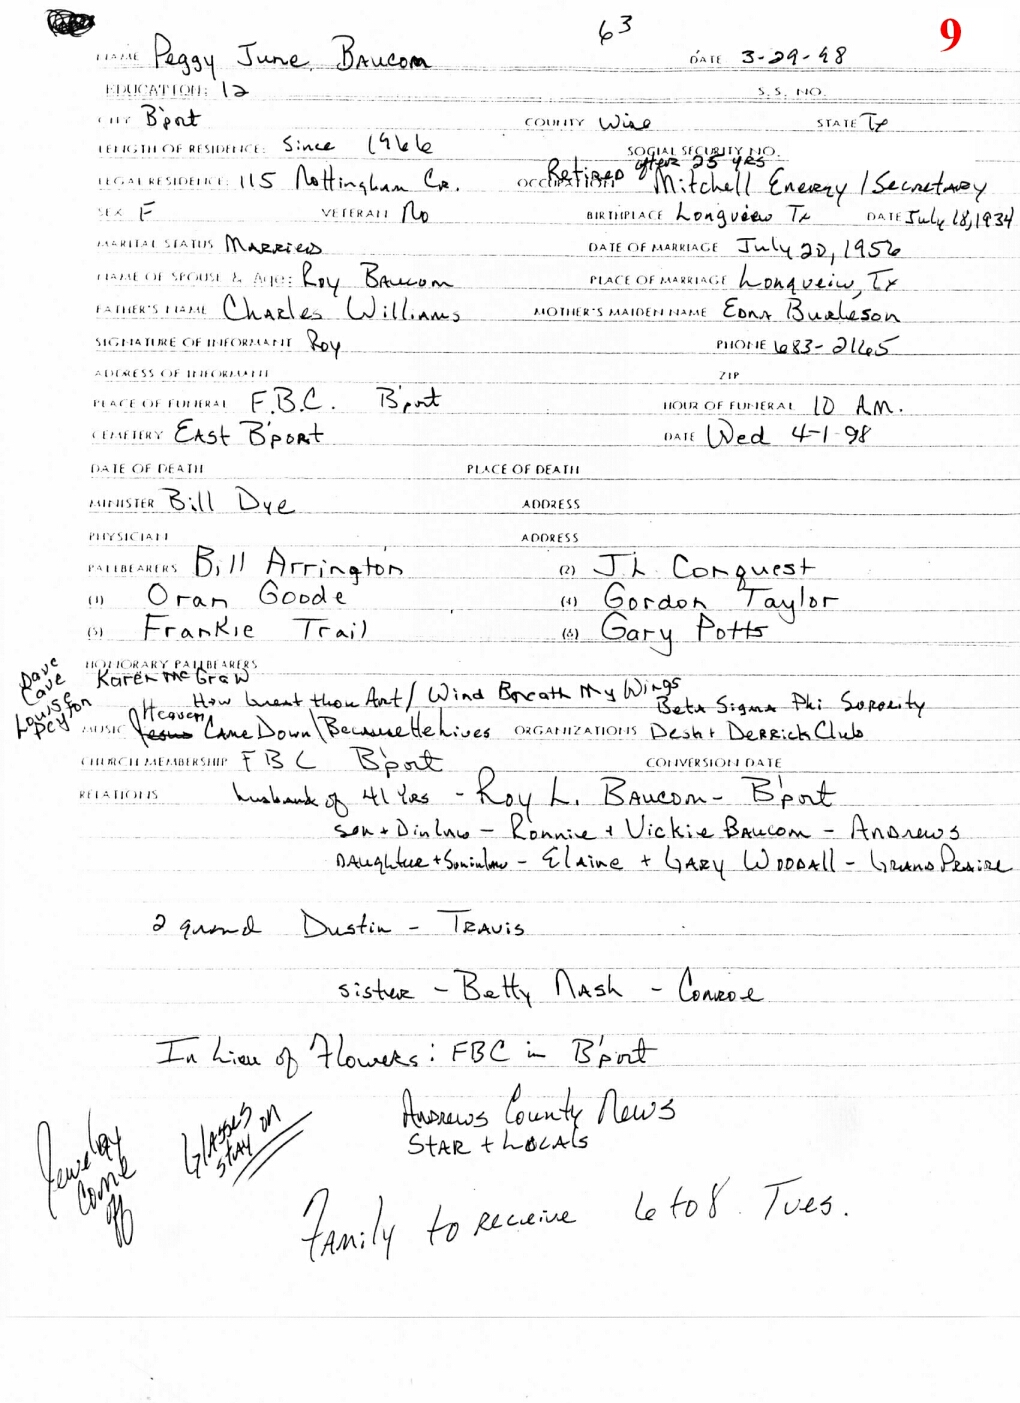 63
9
NAME Peggy June Baucom DATE 3-29-98
EDUCATION: 12 S.S. NO.
CITY B'port COUNTY Wise STATE Tx
LENGTH OF RESIDENCE: Since 1966 SOCIAL SECURITY NO.
Retired after 25 yrs
LEGAL RESIDENCE: 115 Nottingham Cr. OCCUPATION Mitchell Energy / Secretary
SEX F VETERAN No BIRTHPLACE Longview Tx DATE July 18, 1934
MARITAL STATUS Married DATE OF MARRIAGE July 20, 1956
NAME OF SPOUSE & Age: Roy Baucom PLACE OF MARRIAGE Longveiw, Tx
FATHER'S NAME Charles Williams MOTHER'S MAIDEN NAME Edna Burleson
SIGNATURE OF INFORMANT Roy PHONE 683-2165
ADDRESS OF INFORMANT ZIP
PLACE OF FUNERAL F.B.C. B'port HOUR OF FUNERAL 10 A.M.
CEMETERY East B'port DATE Wed 4-1-98
DATE OF DEATH PLACE OF DEATH
MINISTER Bill Dye ADDRESS
PHYSICIAN ADDRESS
PALLBEARERS Bill Arrington (2) J.L. Conquest
(3) Oran Goode (4) Gordon Taylor
(5) Frankie Trail (6) Gary Potts
HONORARY PALLBEARERS
Karen McGraw
Dave
Cave
Louise
Peyton
How Great thou Art / Wind Breath My Wings
Beta Sigma Phi Sorority
Heaven
MUSIC Jesus Came Down / Because He Lives ORGANIZATIONS Desk + Derrick Club
CHURCH MEMBERSHIP FBC B'port CONVERSION DATE
RELATIONS husband of 41 yrs - Roy L. Baucom - B'port
son + DinLaw - Ronnie + Vickie Baucom - Andrews
Daughter + Soninlaw - Elaine + Gary Woodall - Grand Prairie
2 grand Dustin - Travis
sister - Betty Nash - Conroe
In Lieu of Flowers: FBC in B'port
Andrews County News
Star + Locals
Jewelry
come
off
Glasses
stay on
Family to receive 6 to 8 Tues.